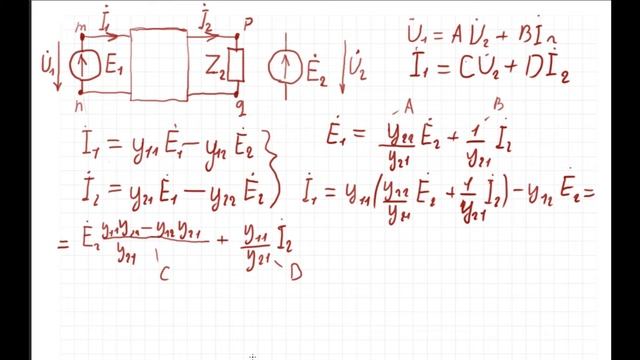 m İ₁ İ₂ p
U̇₁ Ė₁ Z₂ Ė₂ U̇₂
n q
U̇₁ = A U̇₂ + B İ₂
İ₁ = C U̇₂ + D İ₂
İ₁ = y₁₁ Ė₁ − y₁₂ Ė₂
İ₂ = y₂₁ Ė₁ − y₂₂ Ė₂
A B
Ė₁ = y₂₂/y₂₁ Ė₂ + 1/y₂₁ İ₂
İ₁ = y₁₁ (y₂₂/y₂₁ Ė₂ + 1/y₂₁ İ₂) − y₁₂ Ė₂ =
= Ė₂ (y₁₁y₂₂ − y₁₂y₂₁)/y₂₁ + y₁₁/y₂₁ İ₂
C D